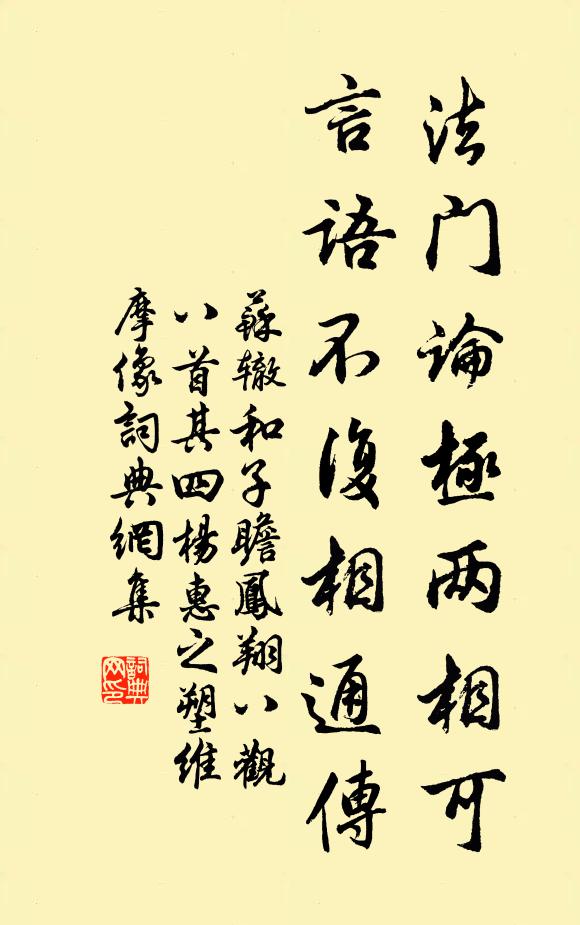 法门論極两相可
言語不復相通傳
蘇辙和子瞻鳳翔八觀
八首其四楊惠之塑維
摩像詞典網集
詞典网印